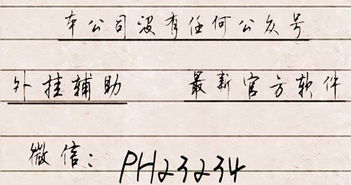 本公司没有任何公众号
外挂辅助 最新官方软件
微信：PH23234